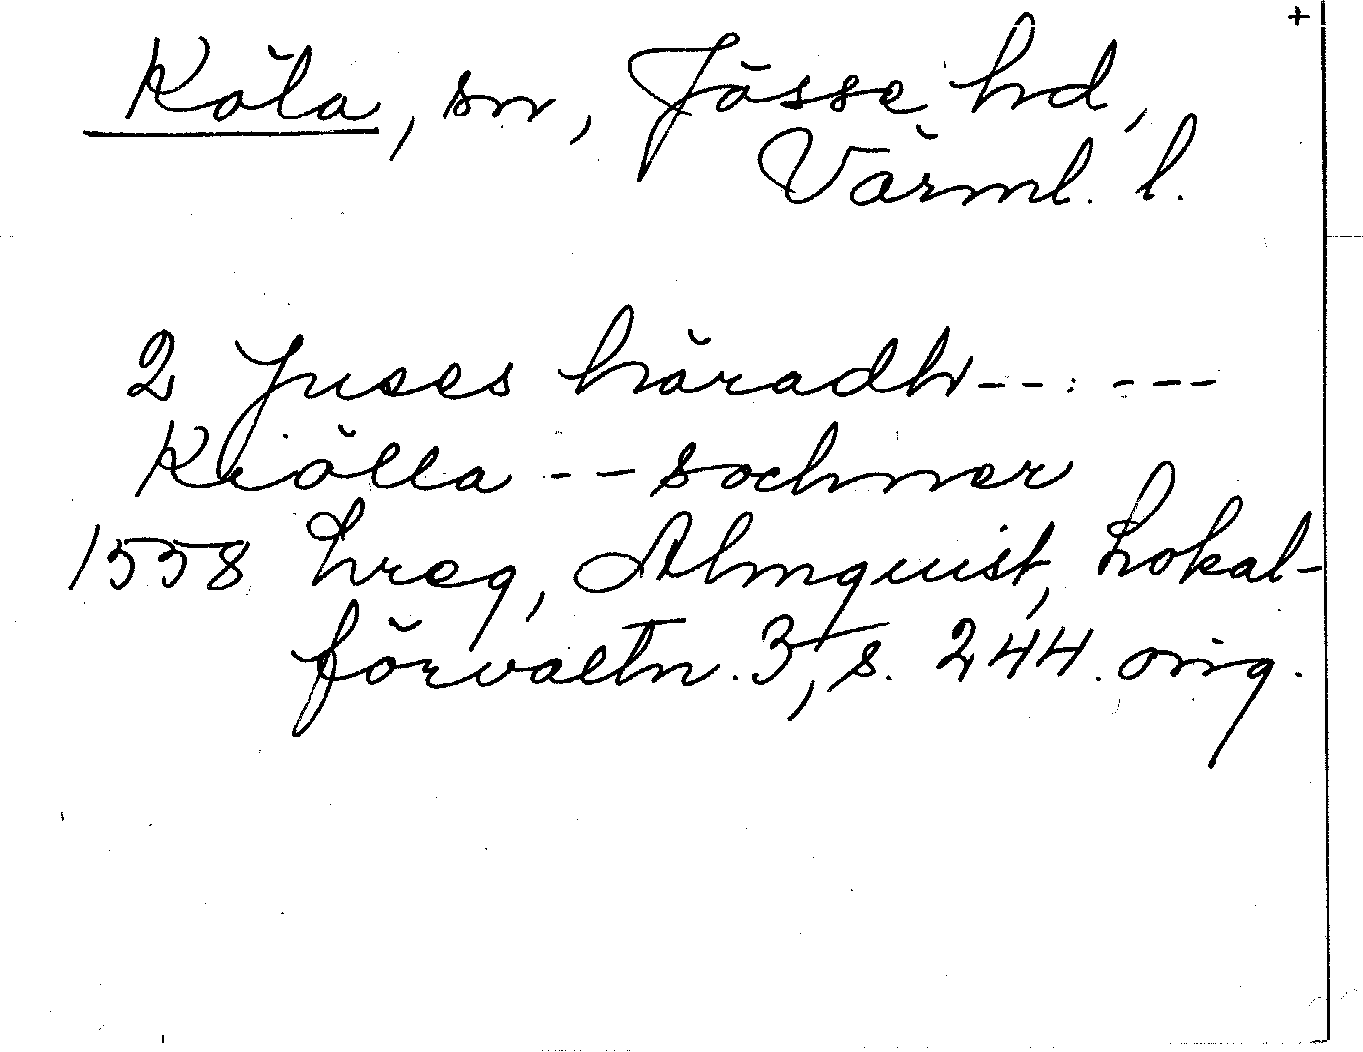 +
Köla, sn, Jösse hd,
Värml. l.
2 Juses häradh--:---
Kiölla -- sochner
1558 hreg, Almquist, Lokal-
förvaltn. 3, s. 244. orig.